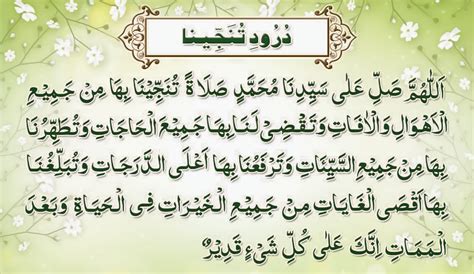 دُرُودِ تُنَجِّينَا
اَللّٰهُمَّ صَلِّ عَلٰى سَيِّدِنَا مُحَمَّدٍ صَلَاةً تُنَجِّيْنَا بِهَا مِنْ جَمِيْعِ
الْاَهْوَالِ وَالْاٰفَاتِ وَتَقْضِىْ لَنَا بِهَا جَمِيْعَ الْحَاجَاتِ وَتُطَهِّرُنَا
بِهَا مِنْ جَمِيْعِ السَّيِّئَاتِ وَتَرْفَعُنَا بِهَا اَعْلَى الدَّرَجَاتِ وَتُبَلِّغُنَا
بِهَا اَقْصَى الْغَايَاتِ مِنْ جَمِيْعِ الْخَيْرَاتِ فِى الْحَيَاةِ وَبَعْدَ
الْمَمَاتِ اِنَّكَ عَلٰى كُلِّ شَىْءٍ قَدِيْرٌ